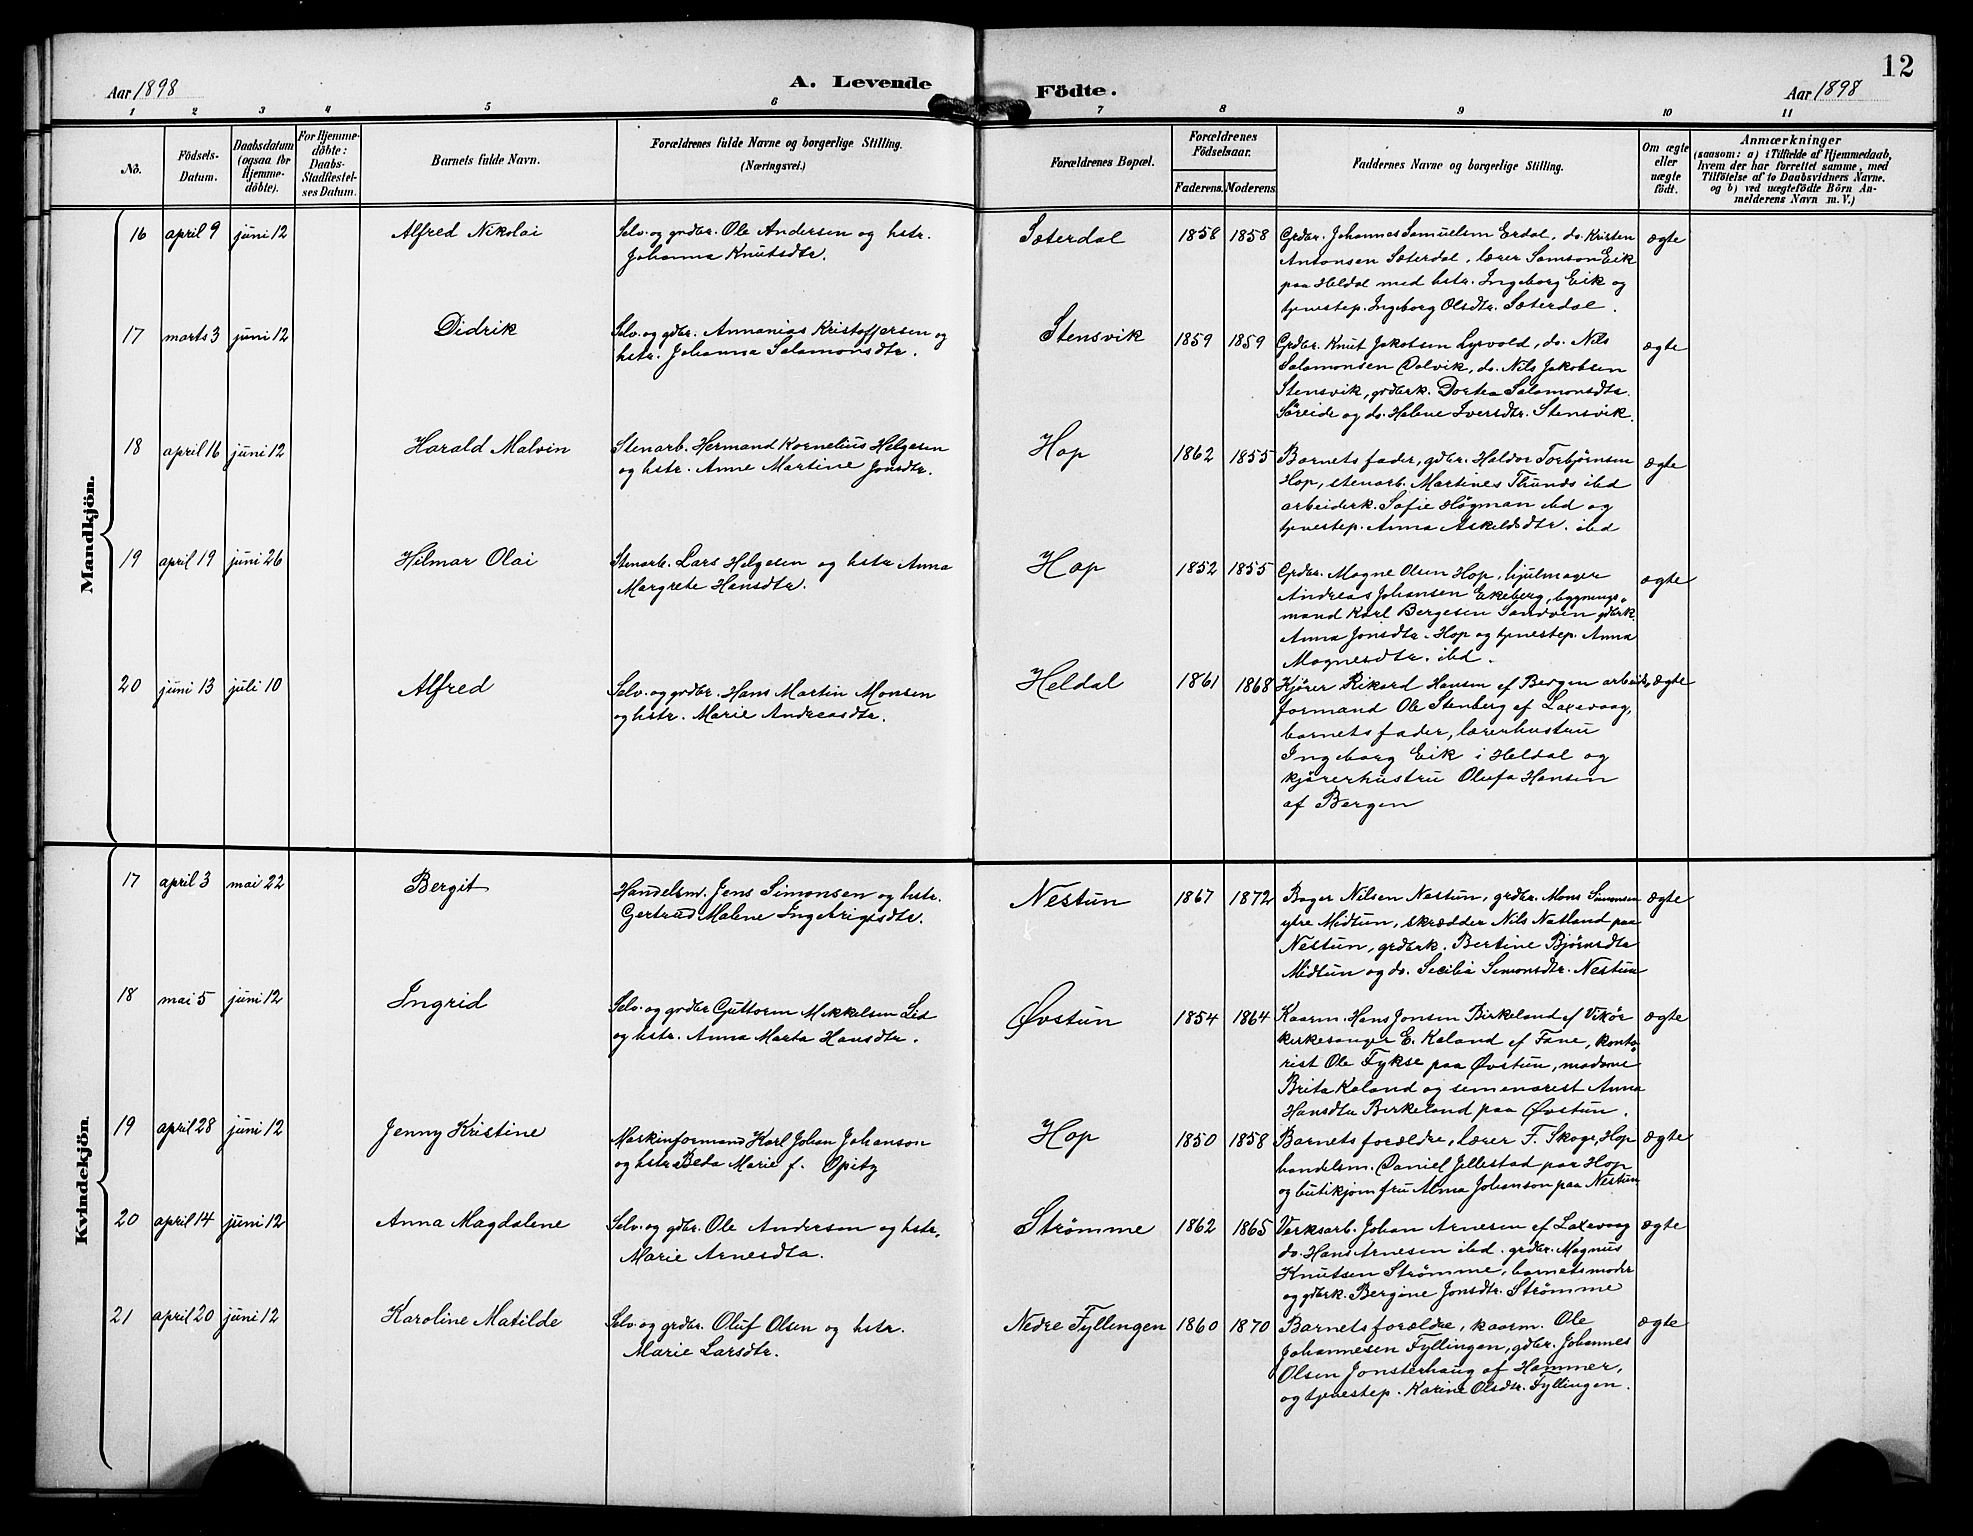 12
Aar 1898
A. Levende Födte.
Aar 1898
1 2 3 4 5 6 7 8 9 10 11
No.
Födsels-
Datum.
Daabsdatum
(ogsaa for
Hjemme-
döbte).
For Hjemme-
döbte:
Daabs-
Stadfæstel-
ses Datum.
Barnets fulde Navn.
Forældrenes fulde Navne og borgerlige Stilling.
(Næringsvei.)
Forældrenes Bopæl.
Forældrenes
Födselsaar.
Faderens. Moderens.
Faddernes Navne og borgerlige Stilling.
Om ægte
eller
uægte
födt.
Anmærkninger
(saasom: a) i Tilfælde af Hjemmedaab,
hvem der har forrettet samme, med
Tilföielse af to Daabsvidners Navne.
og b) ved uægtefödte Börn An-
melderens Navn m. V.)
Mandkjön.
16 april 9 juni 12 Alfred Nikolai
Selv. og grdbr. Ole Andersen og hstr.
Johanna Knutsdtr.
Sæterdal 1858 1858
Grdbr. Johannes Samuelsen Erdal, do. Kristen
Antonsen Sæterdal, lærer Samson Eik
paa Heldal med hstr. Ingeborg Eik og
tjenestep. Ingeborg Olsdtr. Sæterdal.
ægte
17 marts 3 juni 12 Didrik
Selv. og gdbr. Annanias Kristoffersen og
hstr. Johanna Salamonsdtr.
Stensvik 1859 1859
Grdbr. Knut Jakobsen Lysvold, do. Nils
Salamonsen Dalvik, do. Nils Jakobsen
Stensvik, grdbrk. Dortea Salamonsdtr.
Søreide og do. Helene Iversdtr. Stensvik.
ægte
18 april 16 juni 12 Harald Malvin
Stenarb. Hermand Kornelius Helgesen
og hstr. Anne Martine Jonsdtr.
Hop 1862 1855
Barnets fader, gdbr. Haldor Torbjørnsen
Hop, stenarb. Martines Thunds ibd
arbeiderk. Sofie Högman ibd og
tjenestep. Anna Askeldsdtr. ibd
ægte
19 april 19 juni 26 Hilmar Olai
Stenarb. Lars Helgesen og hstr Anna
Margrete Hansdtr.
Hop 1852 1855
Grdbr. Magne Olsen Hop, hjulmager
Andreas Johansen Ekeberg, bygnings-
mand Karl Bergesen Sandven gdbrk.
Anna Jonsdtr. Hop og tjenestep. Anna
Magnesdtr. ibd.
ægte
20 juni 13 juli 10 Alfred
Selv. og grdbr. Hans Martin Monsen
og hstr. Marie Andreasdtr.
Heldal 1861 1868
Kjører Rikard Hansen af Bergen arbeids-
formand Ole Stenberg af Laxevaag,
barnets fader, lærerhustru
Ingeborg Eik i Heldal og
kjørerhustru Olufa Hansen
af Bergen
ægte
Kvindekjön.
17 april 3 mai 22 Bergit
Handelsm. Jens Simonsen og hstr.
Gertrud Malene Ingebrigtsdtr.
Nestun 1867 1872
Bager Nilsen Nestun, grdbr. Mons Simonsen
ytre Midtun, skrædder Nils Natland paa
Nestun, grdbrk. Bertine Bjørnsdtr
Midtun og do. Secilia Simonsdtr. Nestun
ægte
18 mai 5 juni 12 Ingrid
Selv. og grdbr Guttorm Mikkelsen Lid
og hstr. Anna Marta Hansdtr.
Øvstun 1854 1864
Kaarm. Hans Jonsen Birkeland af Vikør
kirkesanger E. Kaland af Fane, konto-
rist Ole Fykse paa Øvstun, madame
Brita Kaland og semenarest Anna
Hansdtr Birkeland paa Øvstun.
ægte
19 april 28 juni 12 Jenny Kristine
Maskinformand Karl Johan Johanson
og hstr Beda Marie f. Opitz
Hop 1850 1858
Barnets forældre, lærer F. Skoge, Hop
handelsm. Daniel Jellestad paa Hop
og butikjomfru Alma Johanson paa Nestun
ægte
20 april 14 juni 12 Anna Magdalene
Selv. og gdbr. Ole Andersen og hstr.
Marie Arnesdtr.
Strømme 1862 1865
Verksarb. Johan Arnesen af Laxevaag
do. Hans Arnesen ibd. grdbr. Magnus
Knutsen Strømme, barnets moder
og gdbrk. Bergine Jonsdtr. Strømme
ægte
21 april 20 juni 12 Karoline Matilde
Selv. og grdbr. Oluf Olsen og hstr.
Marie Larsdtr.
Nedre Fyllingen 1860 1870
Barnets forældre, kaarm. Ole
Johannesen Fyllingen, gdbr. Johannes
Olsen Jonsterhaug af Hammer,
og tjenestep. Karine Olsdtr. Fyllingen.
ægte